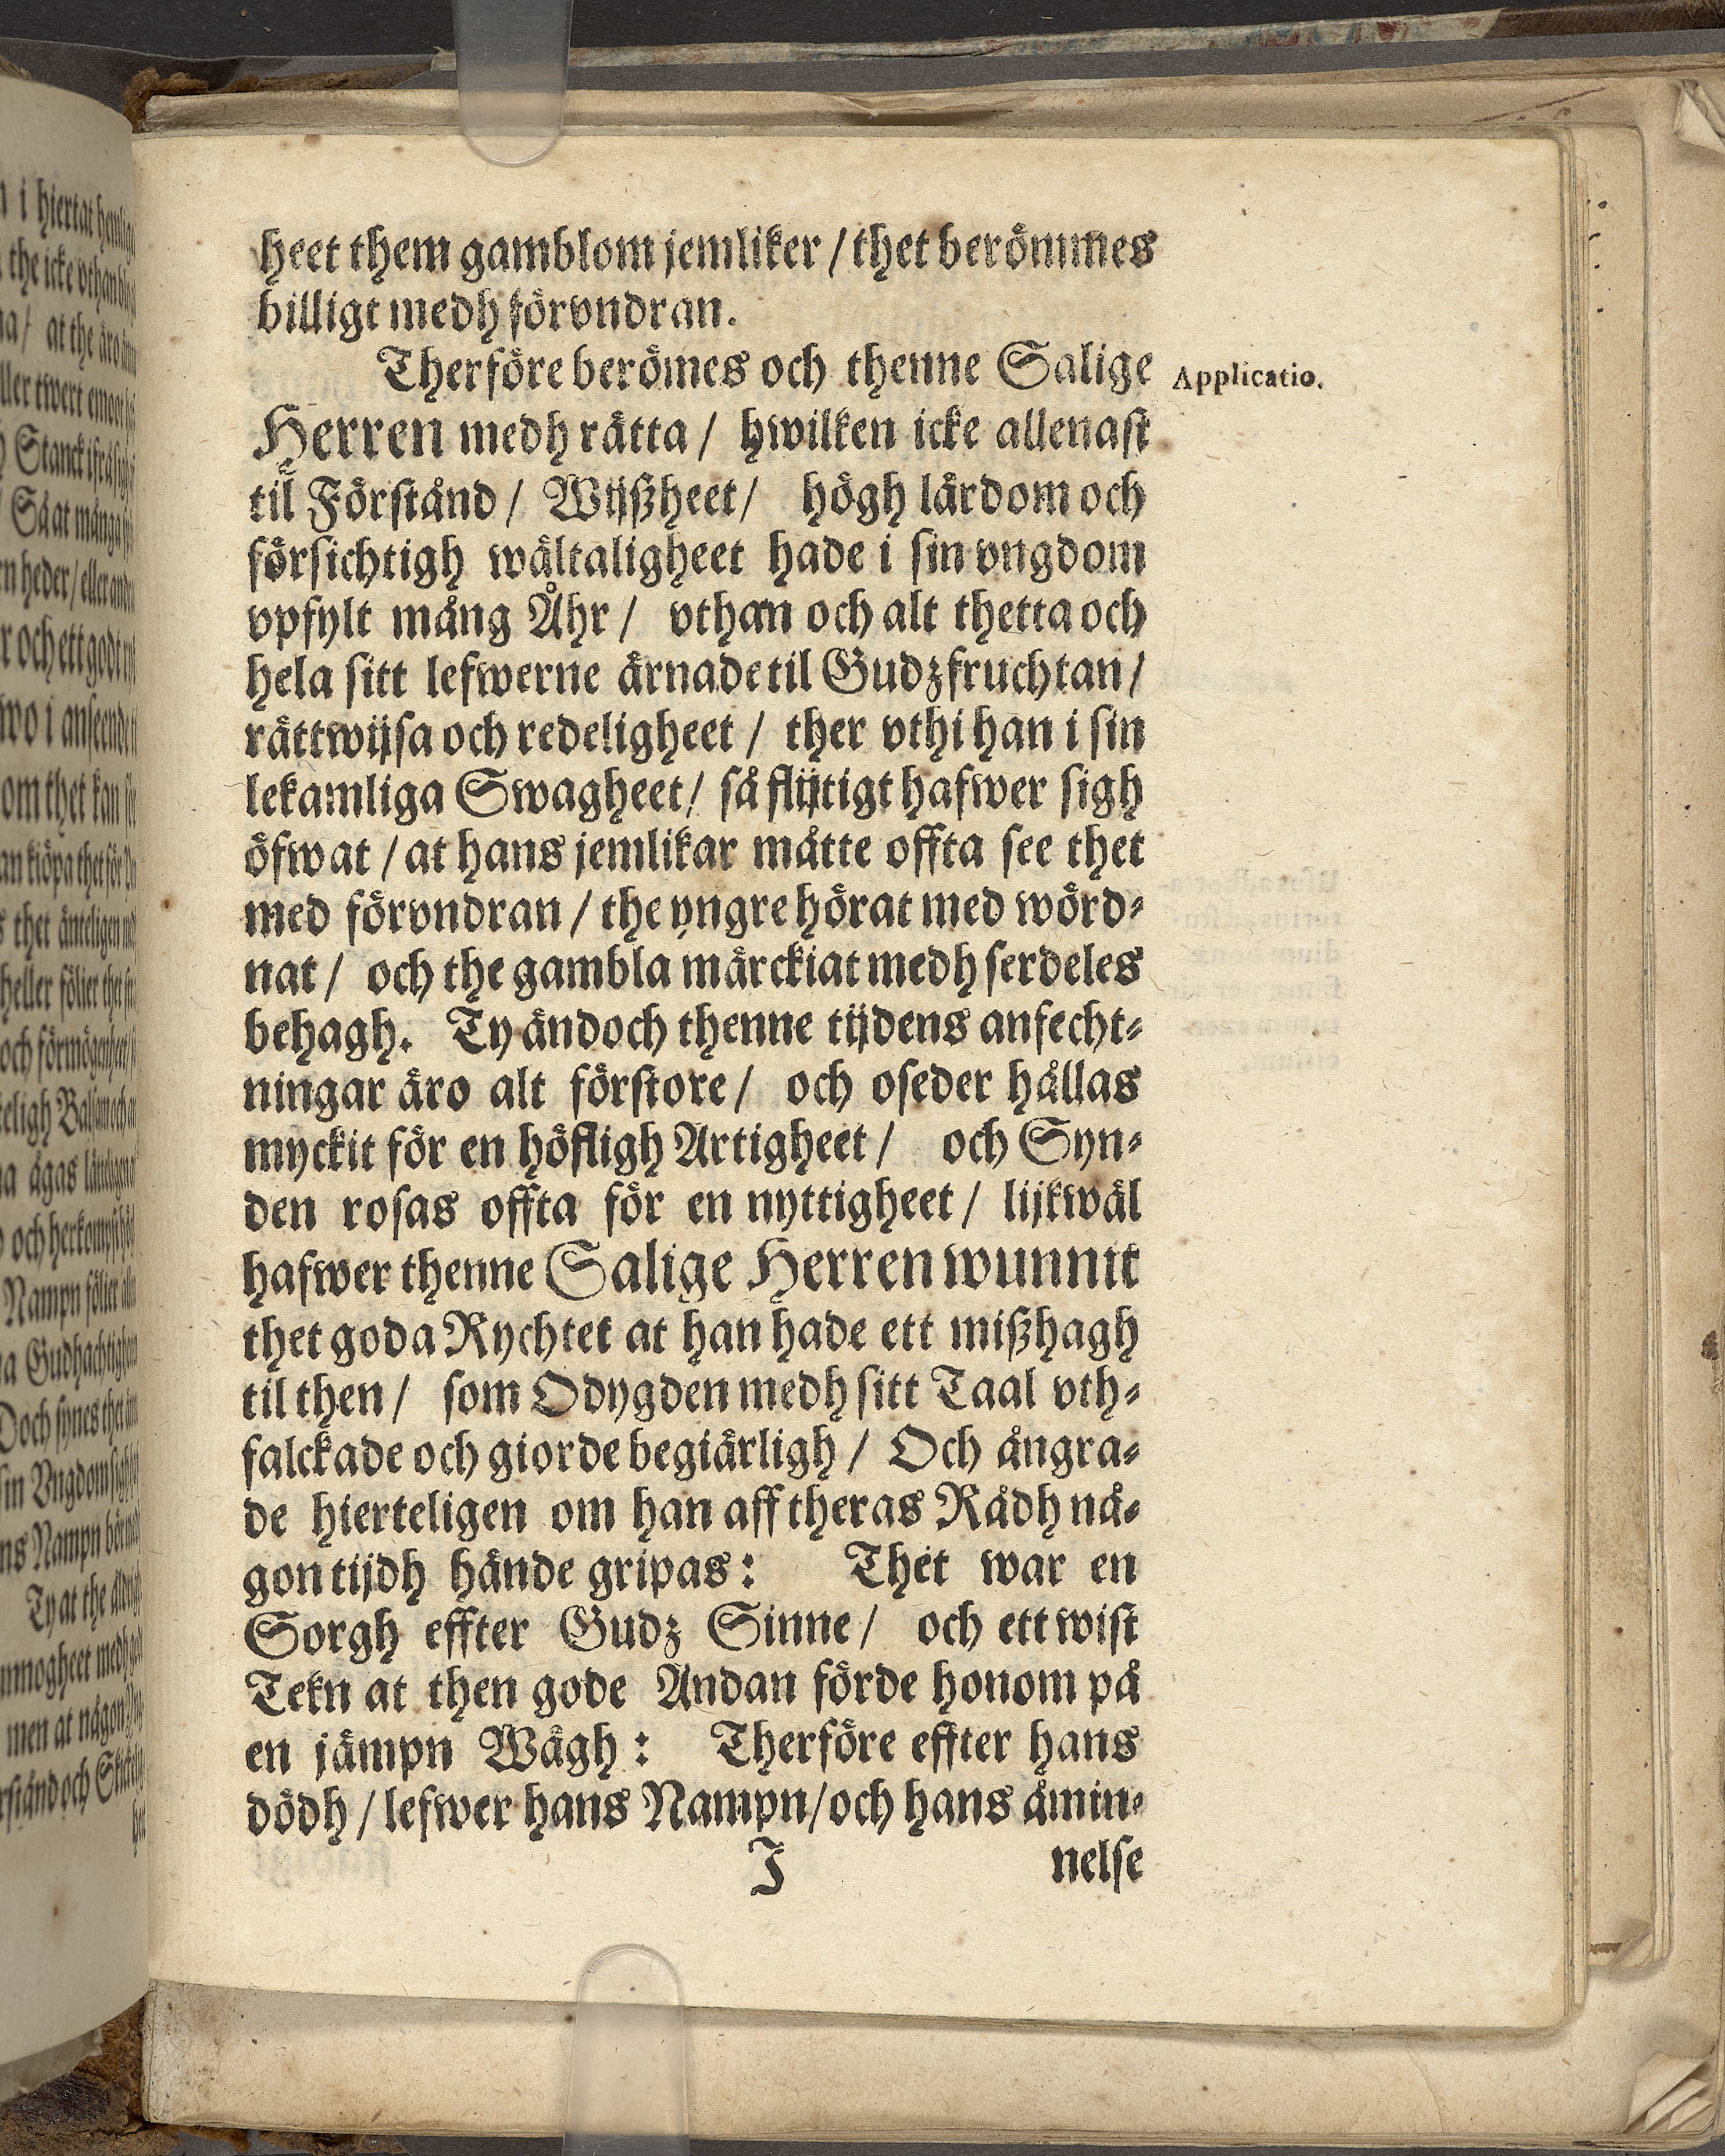 heet them gamblom jemliker / thet berömmes
billigt medh förvndran.
Therföre berömes och thenne Salige
Applicatio.
Herren medh rätta / hwilken icke allenast
til Förstånd / Wijßheet / högh lärdom och
försichtigh wältaligheet hade i sin vngdom
vpfylt mång Åhr / vthan och alt thetta och
hela sitt lefwerne ärnade til Gudzfruchtan /
rättwijsa och redeligheet / ther vthi han i sin
lekamliga Swagheet / så flijtigt hafwer sigh
öfwat / at hans jemlikar måtte offta see thet
med förvndran / the yngre hörat med wörd-
nat / och the gambla märckiat medh serdeles
behagh. Ty ändoch thenne tijdens anfecht-
ningar äro alt förstore / och oseder hållas
myckit för en höfligh Artigheet / och Syn-
den rosas offta för en nyttigheet / lijkwäl
hafwer thenne Salige Herren wunnit
thet goda Rychtet at han hade ett mißhagh
til then / som Odygden medh sitt Taal vth-
falckade och giorde begiärligh / Och ångra-
de hierteligen om han aff theras Rådh nå-
gon tijdh hände gripas: Thet war en
Sorgh effter Gudz Sinne / och ett wist
Tekn at then gode Andan förde honom på
en jämpn Wägh: Therföre effter hans
dödh / lefwer hans Nampn / och hans åmin-
J nelse